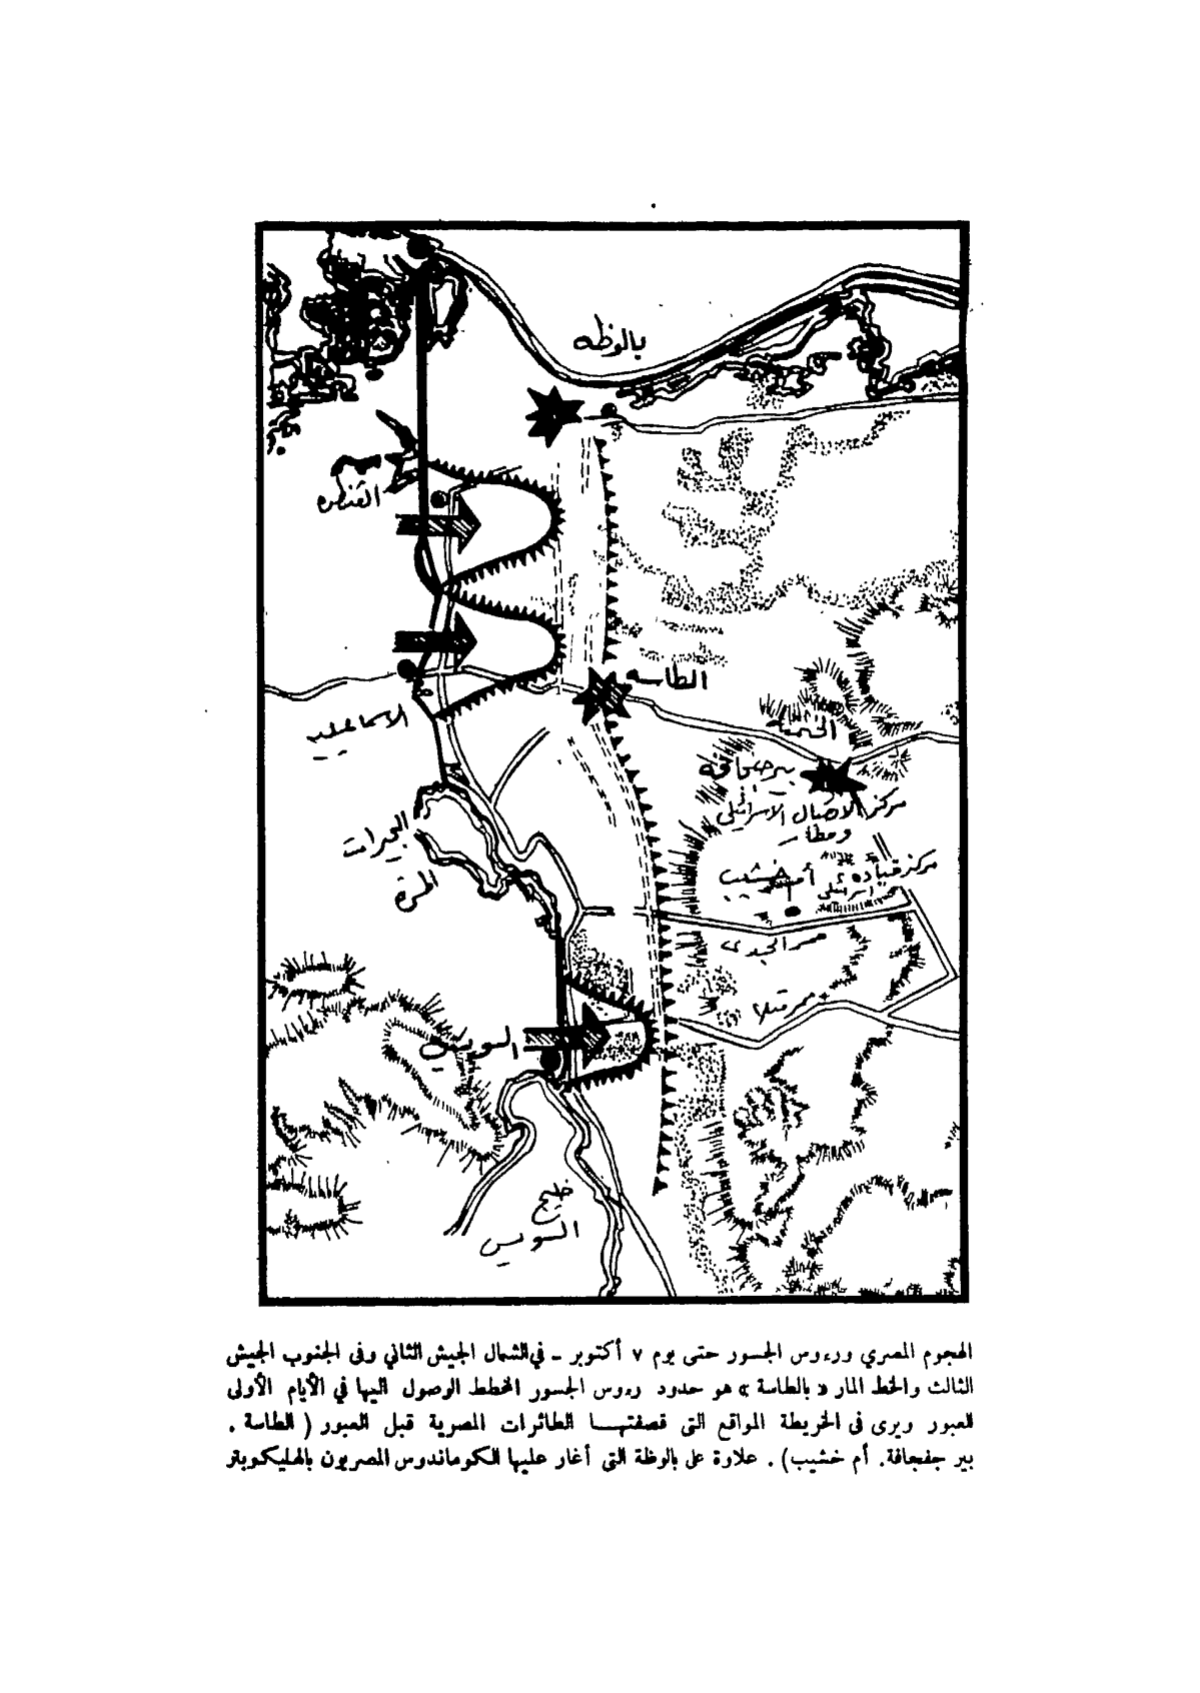 بالوظه
القنطره
الطاسه
الاسماعيليه
الختميه
بير جفجافه
مركز الاتصال الاسرائيلى
ومطار
البحيرات
المرة
مركز قيادة
اسرائيلى
أم خشيب
ممر الجدى
ممر متلا
السويس
خليج
السويس
الهجوم المصري ورءوس الجسور حتى يوم ٧ أكتوبر - في الشمال الجيش الثاني وفى الجنوب الجيش
الثالث والخط المار « بالطاسة » هو حدود رءوس الجسور المخطط الوصول اليها في الأيام الأولى
للعبور ويرى فى الخريطة المواقع التى قصفتهـا الطائرات المصرية قبل العبور ( الطاسة .
بير جفجافة. أم خشيب) . علاوة على بالوظة التى أغار عليها الكوماندوس المصريون بالهليكوبتر